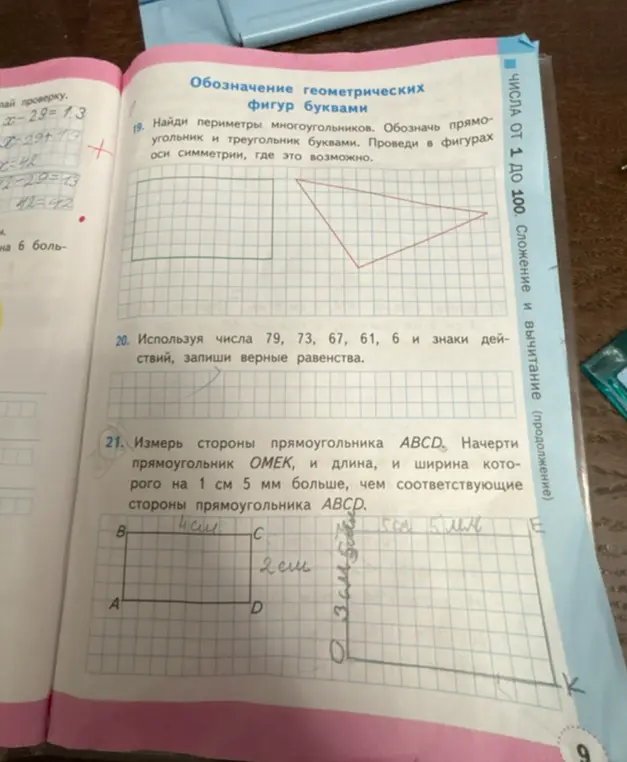 Обозначение геометрических
фигур буквами
19. Найди периметры многоугольников. Обозначь прямо-
угольник и треугольник буквами. Проведи в фигурах
оси симметрии, где это возможно.
20. Используя числа 79, 73, 67, 61, 6 и знаки дей-
ствий, запиши верные равенства.
21. Измерь стороны прямоугольника ABCD. Начерти
прямоугольник OMEK, и длина, и ширина кото-
рого на 1 см 5 мм больше, чем соответствующие
стороны прямоугольника ABCD.
4см
B C
2см
A D
5см 5мм E
3см 5мм
O K
9
ЧИСЛА ОТ 1 ДО 100. Сложение и вычитание (продолжение)
проверку.
x-29=13
x=42
42-29=13
42=42
на 6 боль-